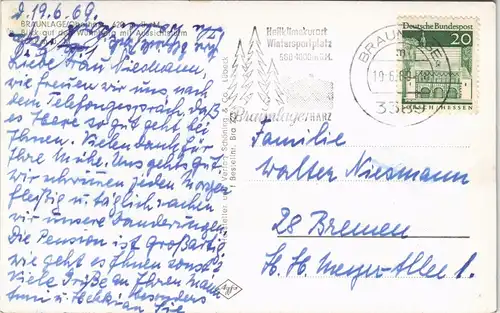 d. 19.6.69.
BRAUNLAGE/Oberharz
Blick auf den Wurmberg mit Aussichtsturm
Liebe Frau Niesmann,
wie freuen wir uns nach
dem Telefongespräch, daß
es Ihnen so gut geht bei
Ihnen. Vielen Dank für
Ihre Mühe. Uns gehts gut,
wir schwimmen jeden Morgen
fleißig u. täglich machen
wir unsere Wanderungen.
Die Pension ist großartig
wie geht es Ihnen sonst?
Viele Grüße an Ihren Mann
besonders
an Sie
Heilklimakurort
Wintersportplatz
550-1000 m ü.M.
Braunlage HARZ
BRAUNLAGE
19.6.69-18
3389
Deutsche Bundespost
20
LORSCH/HESSEN
Familie
Walter Niesmann
28 Bremen
H. H. Meyer-Allee 1.
Schöning & Co
Lübeck
Bestellnr. Bra
Agfa